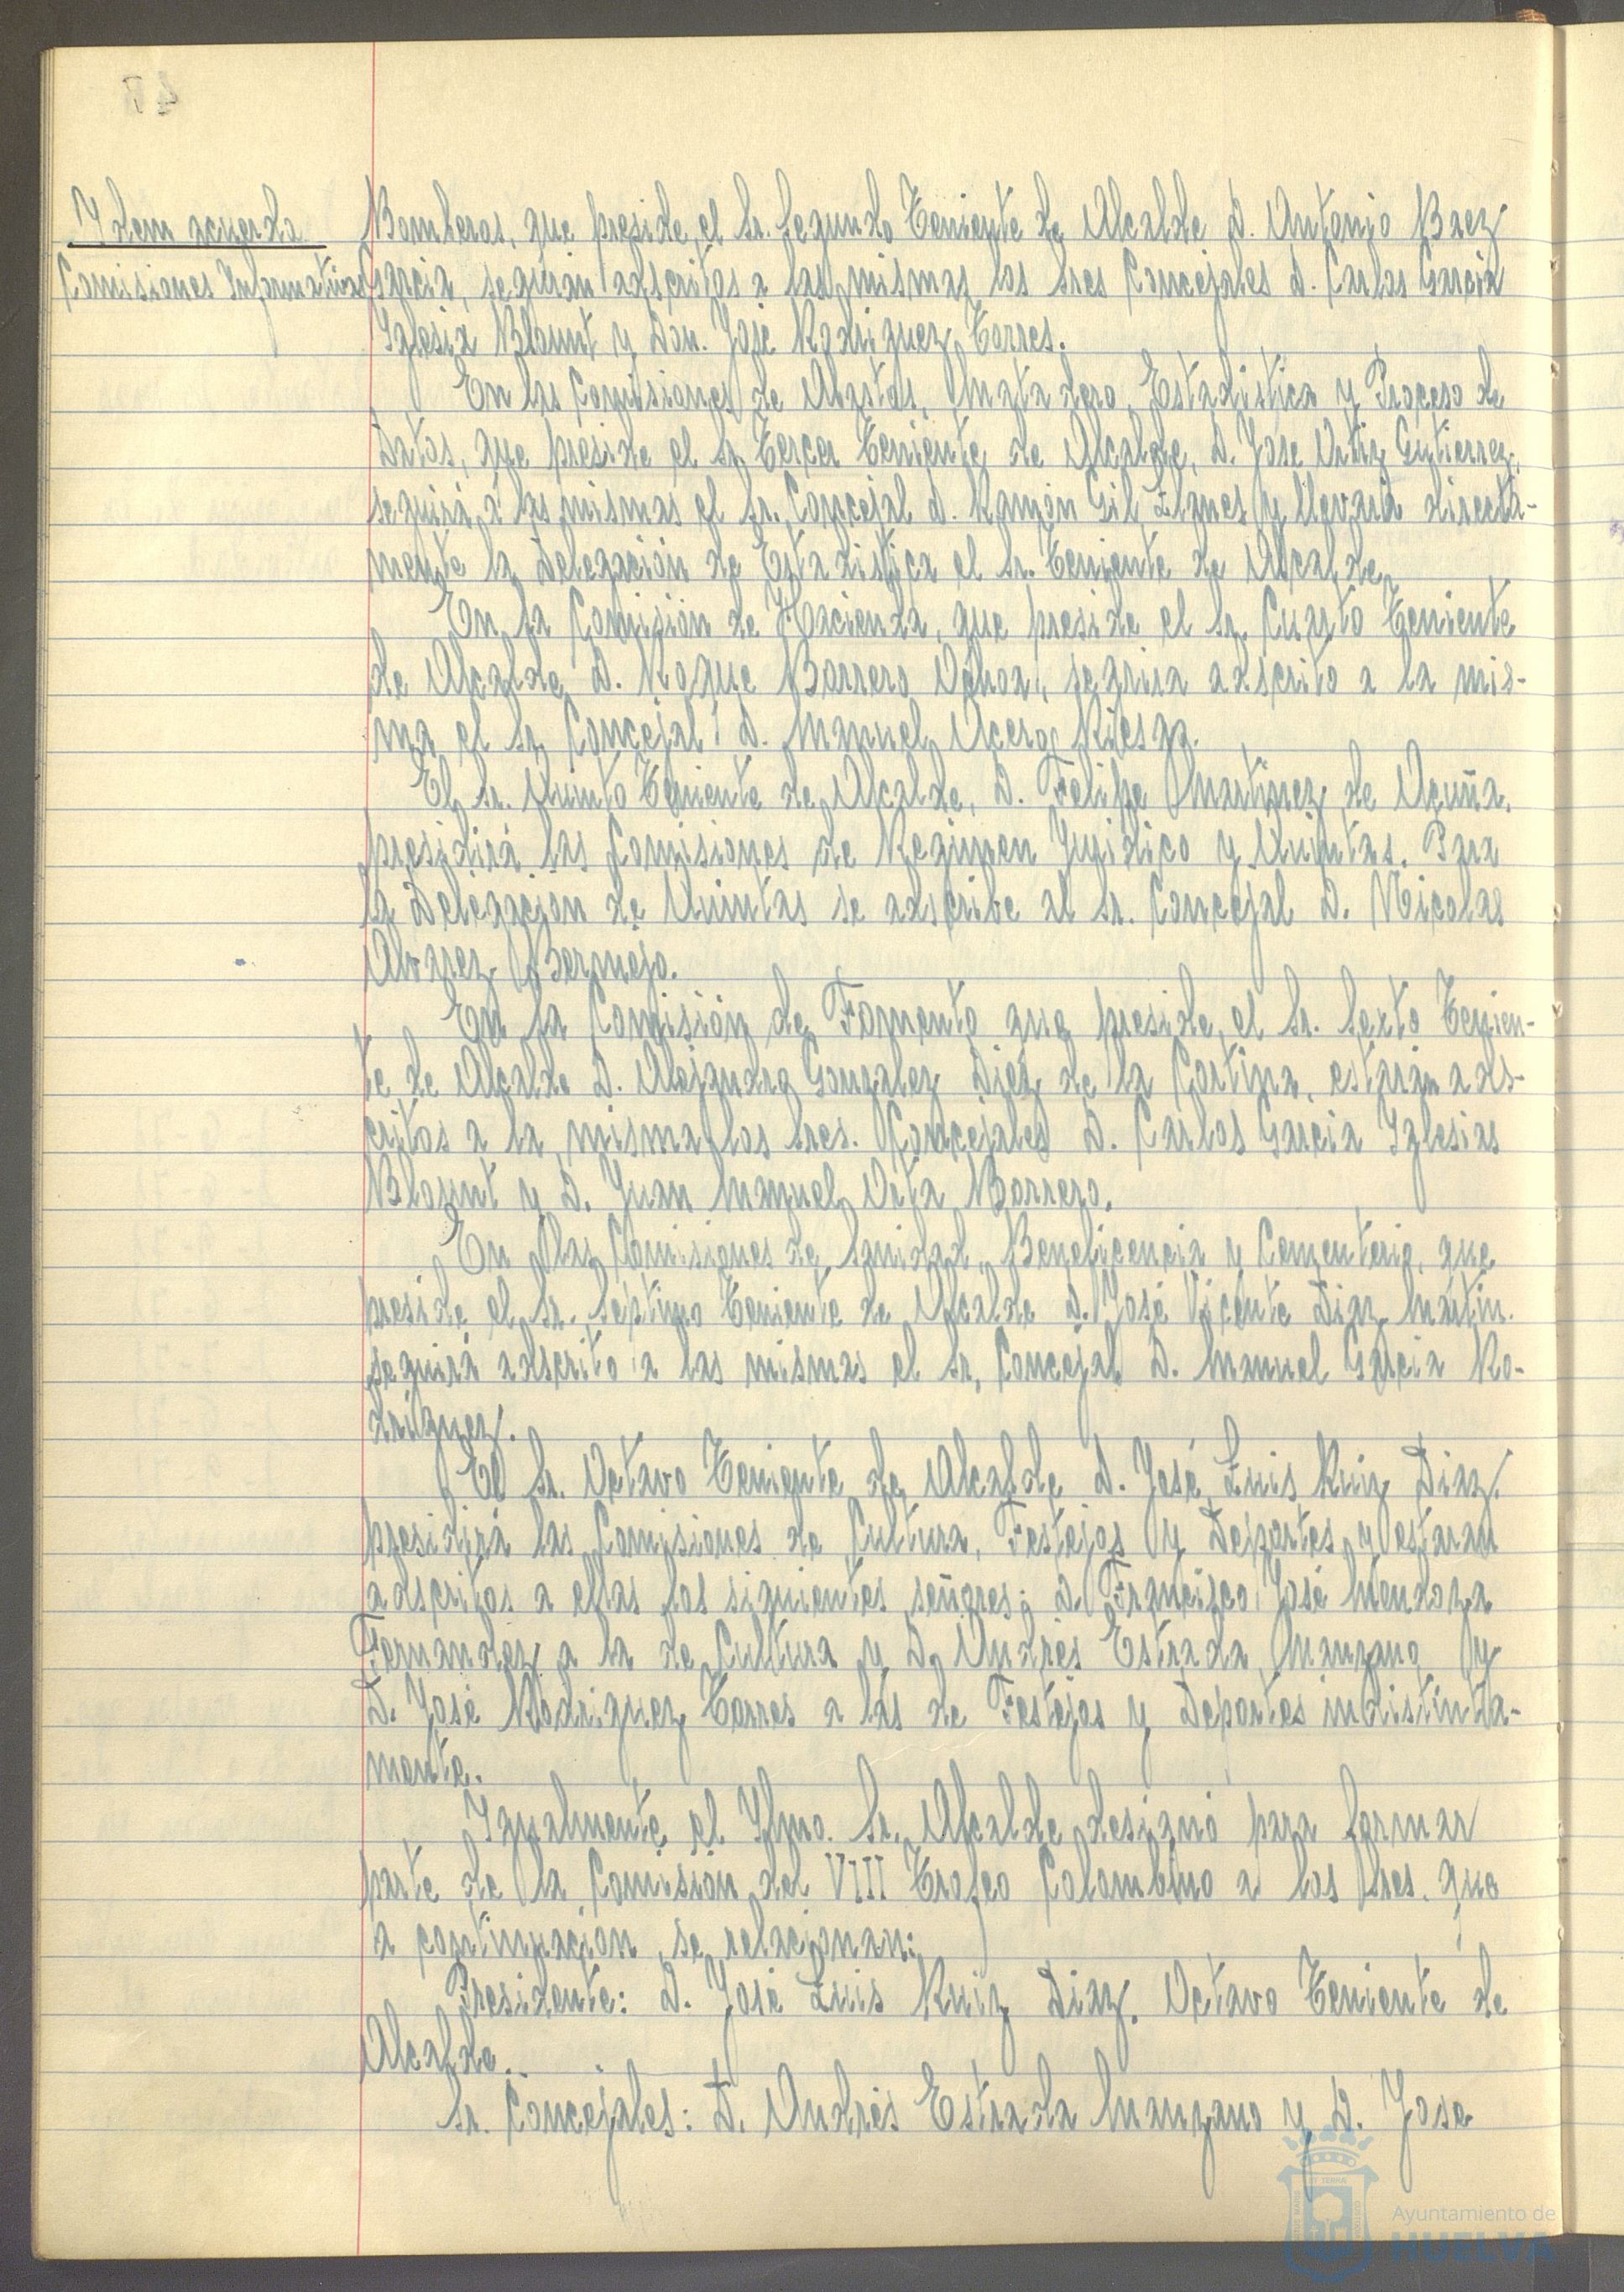 Idem acuerdo
Comisiones Informativas
Bomberos, que preside, el Sr. Segundo Teniente de Alcalde D. Antonio Baez
Garcia, seguirán adscritos a las mismas los Sres Concejales D. Carlos Garcia
Iglesia Blount y Don. José Rodriguez Torres.
En las Comisiones de Abastos, Matadero, Estadistica y Proceso de
Datos, que preside el Sr. Tercer Teniente de Alcalde, D. Jose Ortiz Gutierrez,
seguirá a las mismas el Sr. Concejal D. Ramón Gil Llanes y llevará directa-
mente la Delegación de Estadistica el Sr. Teniente de Alcalde.
En la Comisión de Hacienda, que preside el Sr. Cuarto Teniente
de Alcalde, D. Roque Barrero Ochoa, seguira adscrito a la mis-
ma el Sr. Concejal D. Manuel Acero
El Sr. Quinto Teniente de Alcalde, D. Felipe Martinez de Acuña,
presidirá las Comisiones de Regimen Juridico y Quintas. Para
la Delegacion de Quintas se adscribe al Sr. Concejal D. Nicolas
Alvarez Bermejo.
En la Comisión de Fomento que preside, el Sr. Sexto Tenien-
te de Alcalde D. Alejandro Gonzalez Diez de la Cortina, estarán ads-
critos a la misma los Sres. Concejales D. Carlos Garcia Iglesias
Blount y D. Juan Manuel Orta Borrero.
En las Comisiones de Sanidad, Beneficencia y Cementerio, que
preside el Sr. Séptimo Teniente de Alcalde D. José Vicente Diaz Martin.
seguirá adscrito a las mismas el Sr. Concejal D. Manuel Garcia Ro-
driguez.
El Sr. Octavo Teniente de Alcalde D. José Luis Ruiz Diaz.
presidirá las Comisiones de Cultura, Festejos y Deportes y estaran
adscritos a ellas los siguientes señores; D. Francisco José Mendoza
Fernandez a la de Cultura y D. Andrés Estrada Manzano y
D. José Rodriguez Torres a las de Festejos y Deportes indistinta-
mente.
Igualmente el Ylmo. Sr. Alcalde designó para formar
parte de la Comisión del VIII Trofeo Colombino a los Sres. que
a continuacion se relacionan:
Presidente: D. José Luis Ruiz Diaz. Octavo Teniente de
Alcalde.
Sr. Concejales: D. Andrés Estrada Manzano y D. Jose
Ayuntamiento de
HUELVA